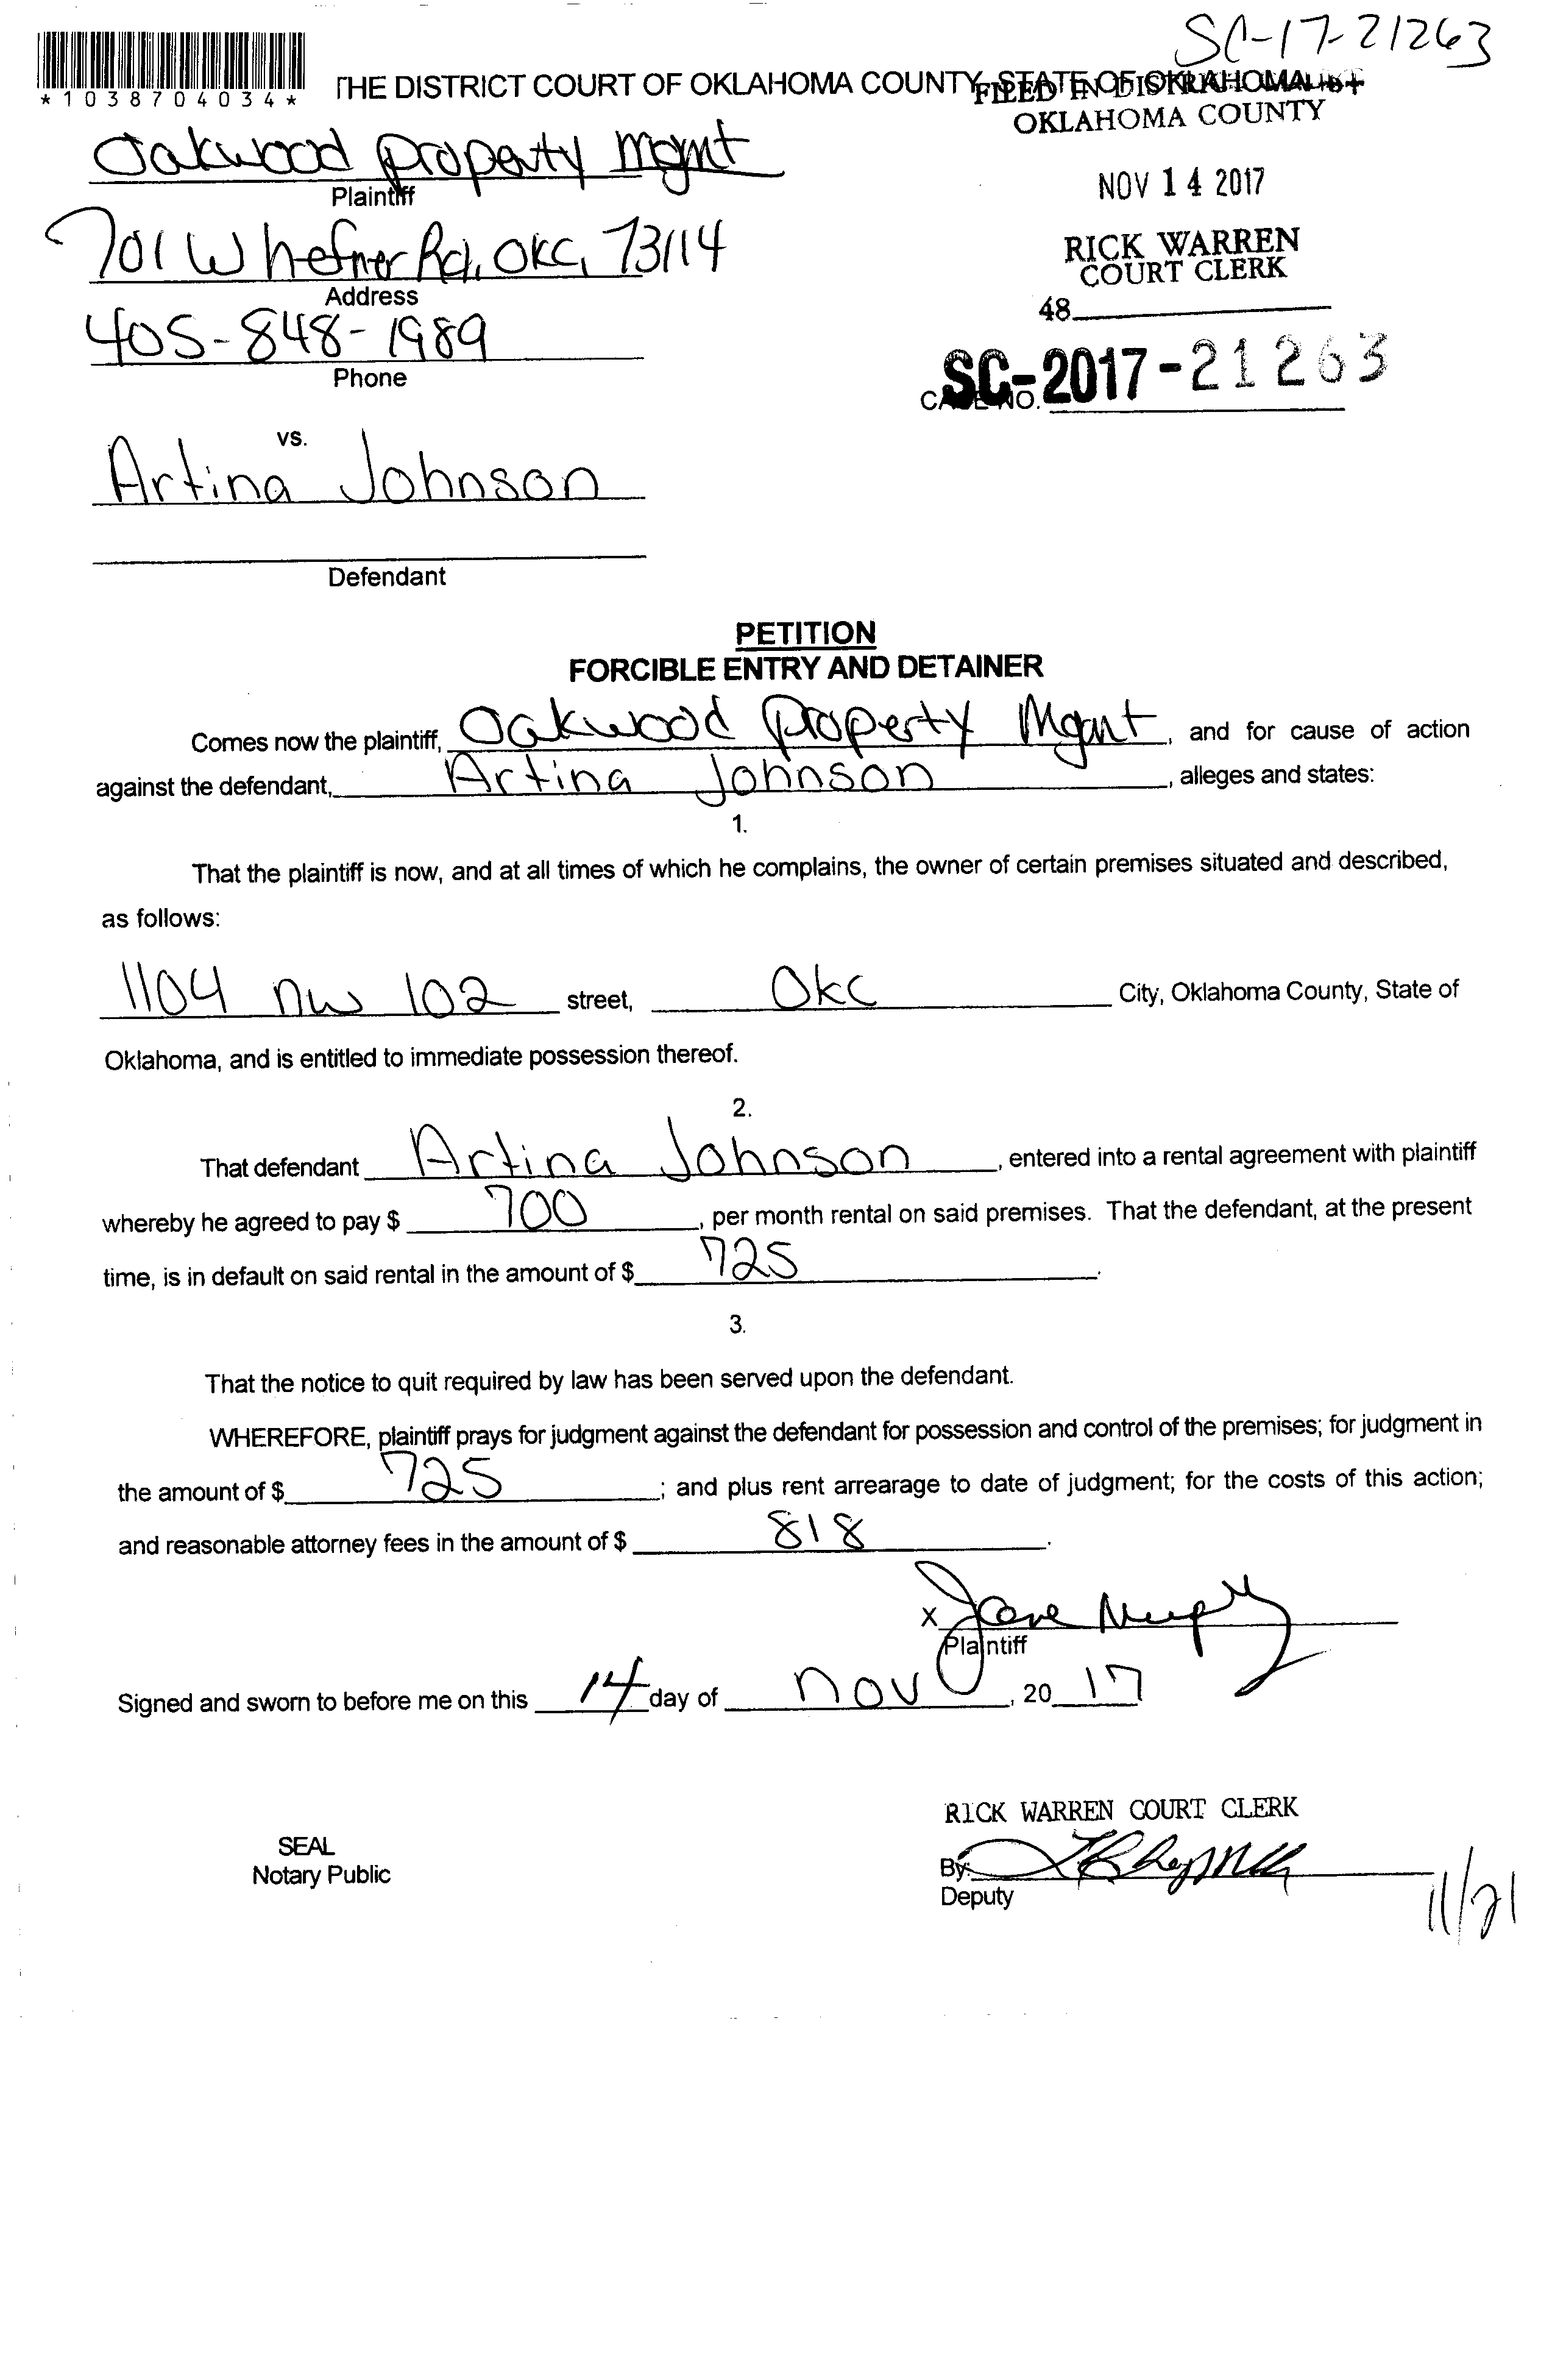 SC-17-21263
*1038704034*
THE DISTRICT COURT OF OKLAHOMA COUNTY, STATE OF OKLAHOMA
FILED IN DISTRICT COURT
OKLAHOMA COUNTY
Oakwood Property Mgmt
Plaintiff
NOV 14 2017
701 W hefner Rd, OKC, 73114
Address
RICK WARREN
COURT CLERK
405-848-1989
Phone
48
SC-2017-21263
CASE NO.
vs.
Artina Johnson
Defendant
PETITION
FORCIBLE ENTRY AND DETAINER
Comes now the plaintiff, Oakwood Property Mgmt, and for cause of action
against the defendant, Artina Johnson, alleges and states:
1.
That the plaintiff is now, and at all times of which he complains, the owner of certain premises situated and described,
as follows:
1104 nw 102 street, Okc City, Oklahoma County, State of
Oklahoma, and is entitled to immediate possession thereof.
2.
That defendant Artina Johnson, entered into a rental agreement with plaintiff
whereby he agreed to pay $ 700, per month rental on said premises. That the defendant, at the present
time, is in default on said rental in the amount of $ 725.
3.
That the notice to quit required by law has been served upon the defendant.
WHEREFORE, plaintiff prays for judgment against the defendant for possession and control of the premises; for judgment in
the amount of $ 725; and plus rent arrearage to date of judgment; for the costs of this action;
and reasonable attorney fees in the amount of $ 818.
x
Plaintiff
Signed and sworn to before me on this 14 day of nov, 20 17
RICK WARREN COURT CLERK
SEAL
Notary Public
By:
Deputy
11/21